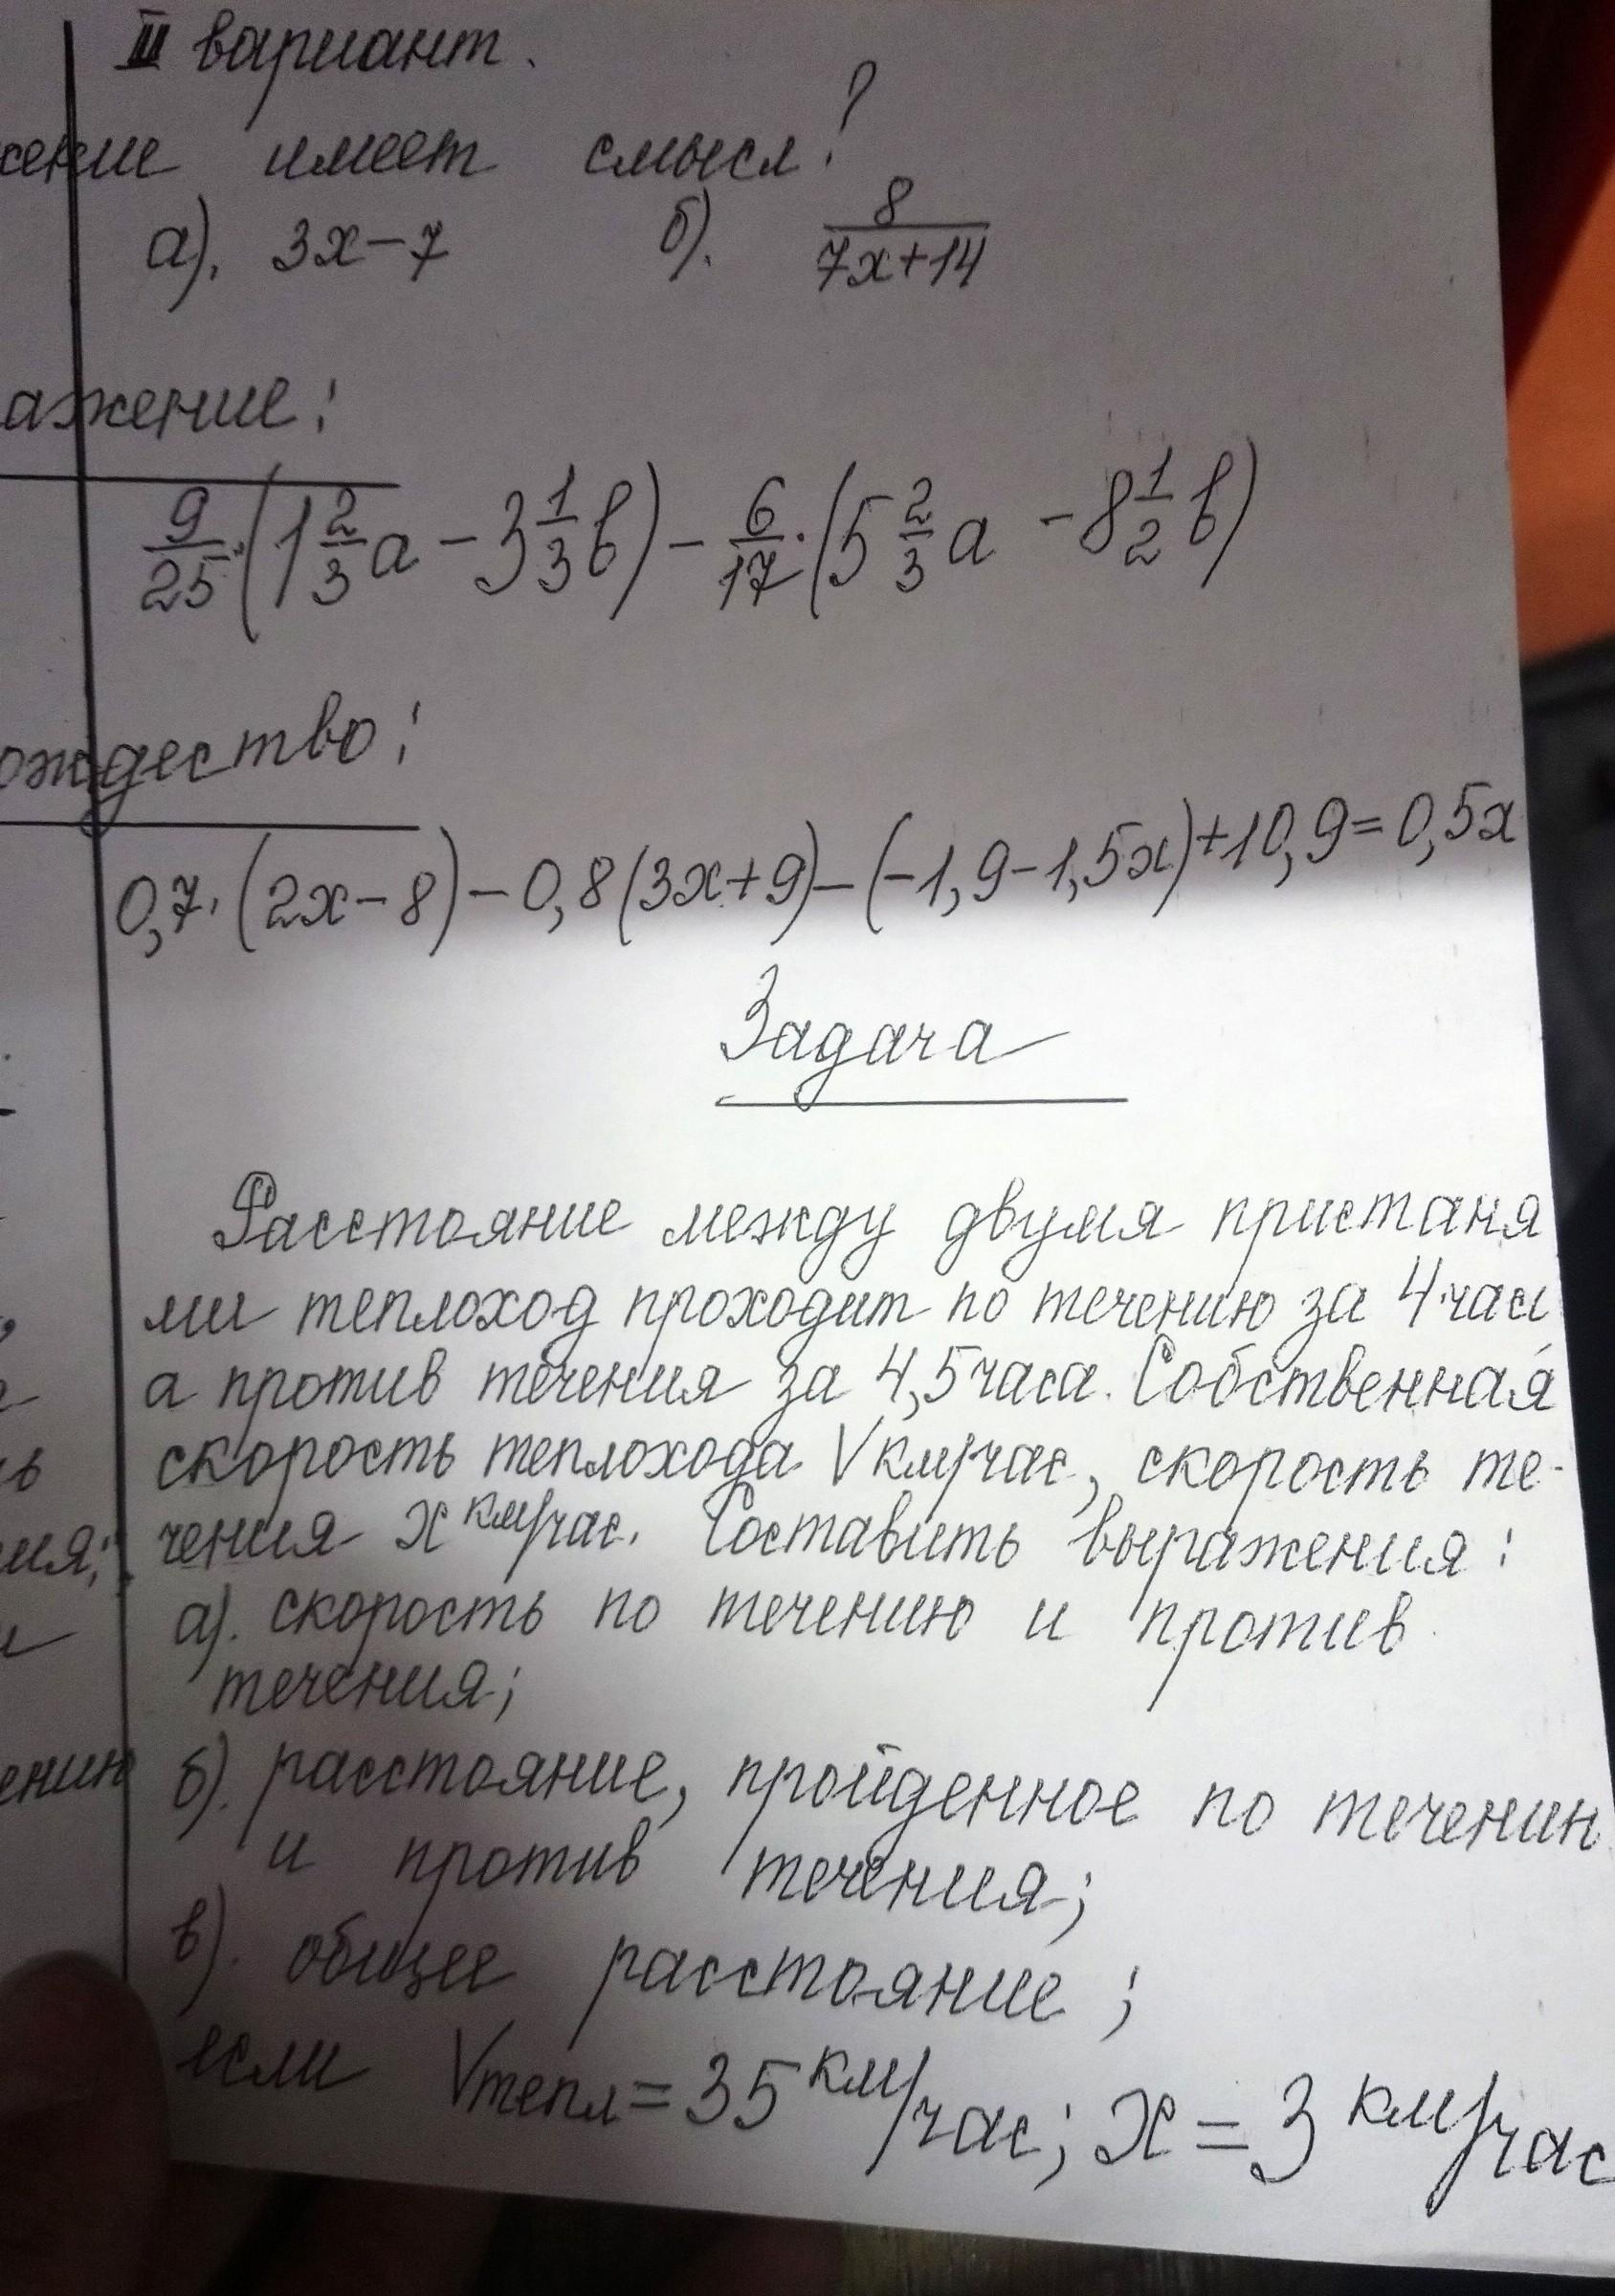 II вариант.
имеет смысл?
а). 3x-7 б). 8/(7x+14)
ажение:
9/25·(1 2/3a - 3 1/3b) - 6/17·(5 2/3a - 8 1/2b)
ождество:
0,7·(2x-8)-0,8(3x+9)-(-1,9-1,5x)+10,9=0,5x
Задача
Расстояние между двумя пристаня
ми теплоход проходит по течению за 4 часа
а против течения за 4,5 часа. Собственная
скорость теплохода V км/час, скорость те-
чения x км/час. Составить выражения:
а). скорость по течению и против
течения;
б). расстояние, пройденное по течению
и против течения;
в). общее расстояние;
если Vтепл=35 км/час; x=3 км/час